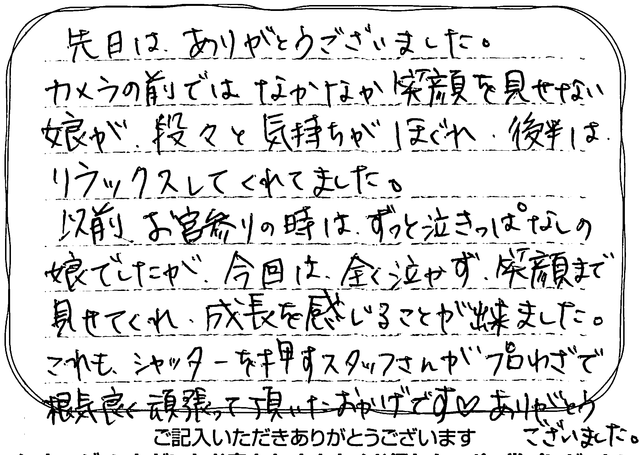 先日は、ありがとうございました。
カメラの前では なかなか 笑顔を見せない
娘が、段々と 気持ちが ほぐれ、後半は
リラックスしてくれてました。
以前、お宮参りの時は、ずっと泣きっぱなしの
娘でしたが、今回は、全く泣かず、笑顔まで
見せてくれ、成長を感じることが出来ました。
これも、シャッターを押すスタッフさんが プロわざで
根気良く 頑張って 頂いたおかげです♡ ありがとう
ございました。
ご記入いただきありがとうございます